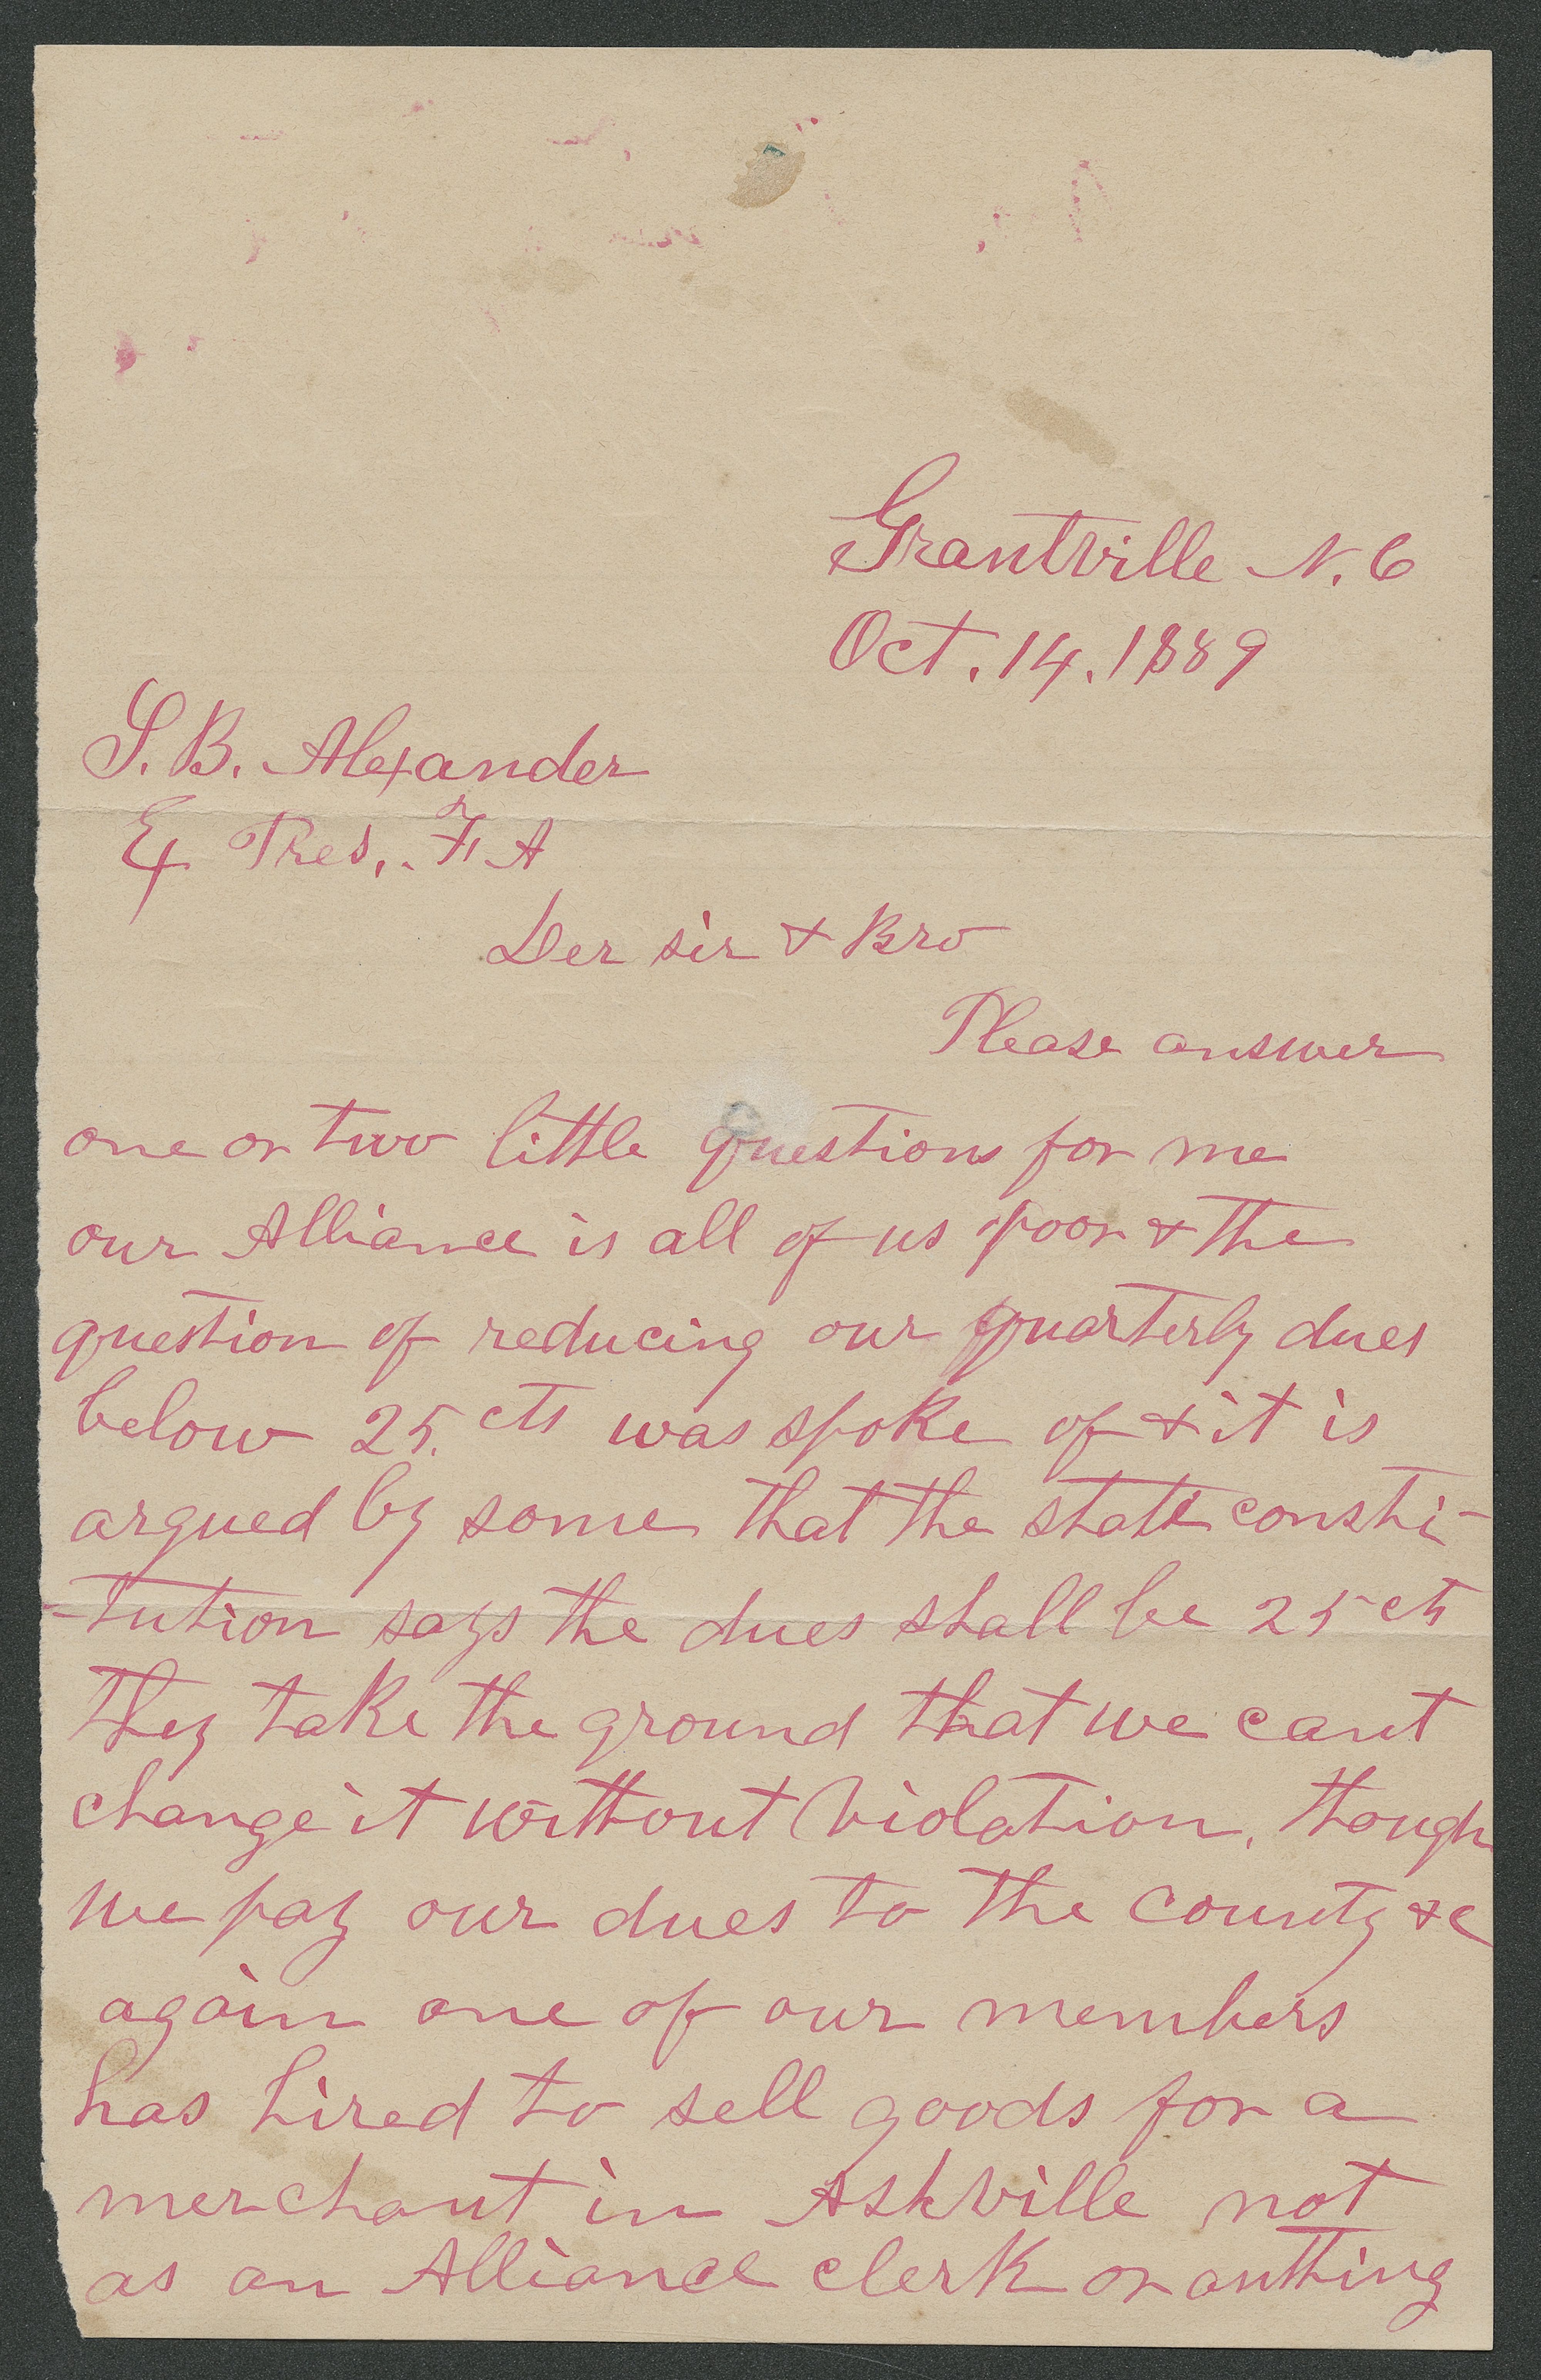 Grantville N. C
Oct. 14. 1889
S. B. Alexander
Ex Pres,. F. A
Der sir & Bro
Please answer
one or two little questions for me
our Alliance is all of us poor & the
question of reducing our quarterly dues
below 25. cts was spoke of & it is
argued by some that the state consti-
-tution says the dues shall be 25 cts
they take the ground that we cant
change it without violation, though
we pay our dues to the county &c
again one of our members
has hired to sell goods for a
merchant in Ashville not
as an Alliance clerk or anthing